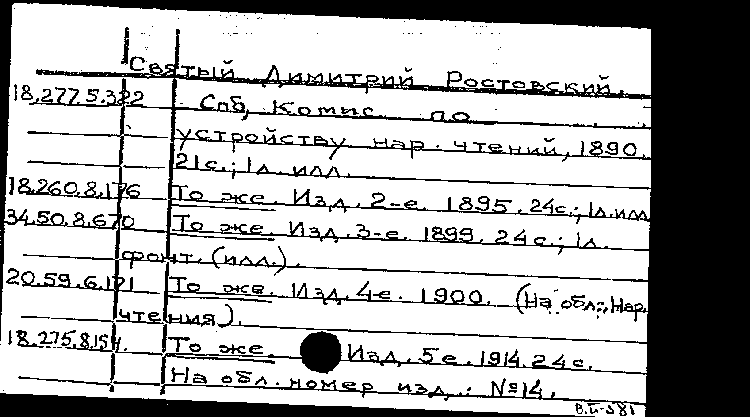 Святый Димитрий Ростовский.
18.277.5.322 Спб, Комис. по
устройству нар. чтений, 1890.
21с.; 1л. илл.
18.260.8.176 То же. Изд. 2-е. 1895. 24с.; 1л. илл
34.50.8.670 То же. Изд. 3-е. 1899. 24с.; 1л.
фронт. (илл.).
20.59.6.121 То же. Изд. 4-е. 1900. (На обл.: Нар.
чтения).
18.275.8.154. То же. Изд. 5е. 1914. 24с.
На обл. номер изд.: №14.